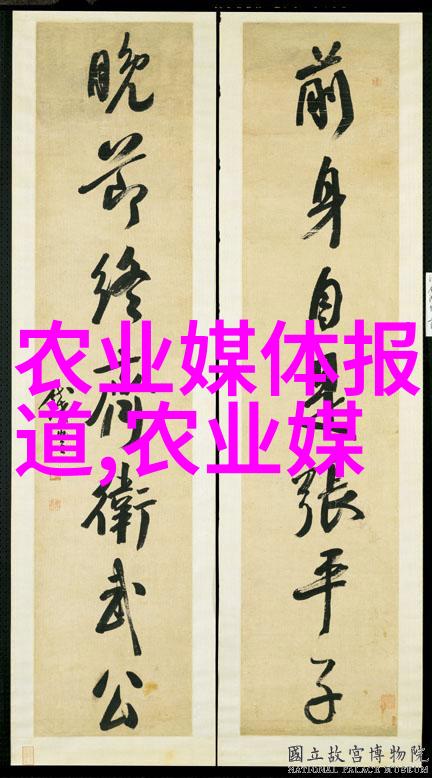 前身自是張平子
晚節終衛武公
农业媒体报
道,农业媒
國立故宮博物院
NATIONAL PALACE MUSEUM